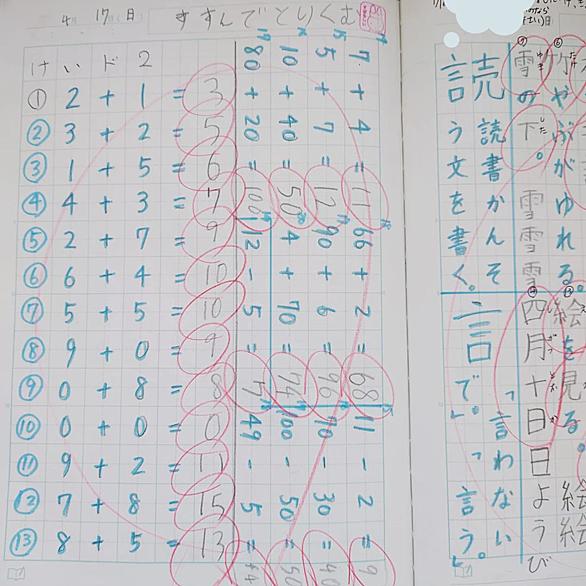 4 17 日
すすんでとりくむ
けいド2
① 2 + 1 = 3
② 3 + 2 = 5
③ 1 + 5 = 6
④ 4 + 3 = 7
⑤ 2 + 7 = 9
⑥ 6 + 4 = 10
⑦ 5 + 5 = 10
⑧ 9 + 0 = 9
⑨ 0 + 8 = 8
⑩ 0 + 0 = 0
⑪ 9 + 2 = 11
⑫ 7 + 8 = 15
⑬ 8 + 5 = 13
7 + 4 = 11
5 + 7 = 12
10 + 40 = 50
80 + 20 = 100
66 + 2 = 68
90 + 6 = 96
4 + 70 = 74
12 - 5 = 7
11 - 2 = 9
- 30 = 40
100 - 50 = 50
49 - 5 = 44
竹やぶがゆれる。
雪の下。雪雪雪
読
読書かんそ
う文を書く。
絵を見る。絵絵
四月十日日ようび
言
「言わない
で」。「言う。